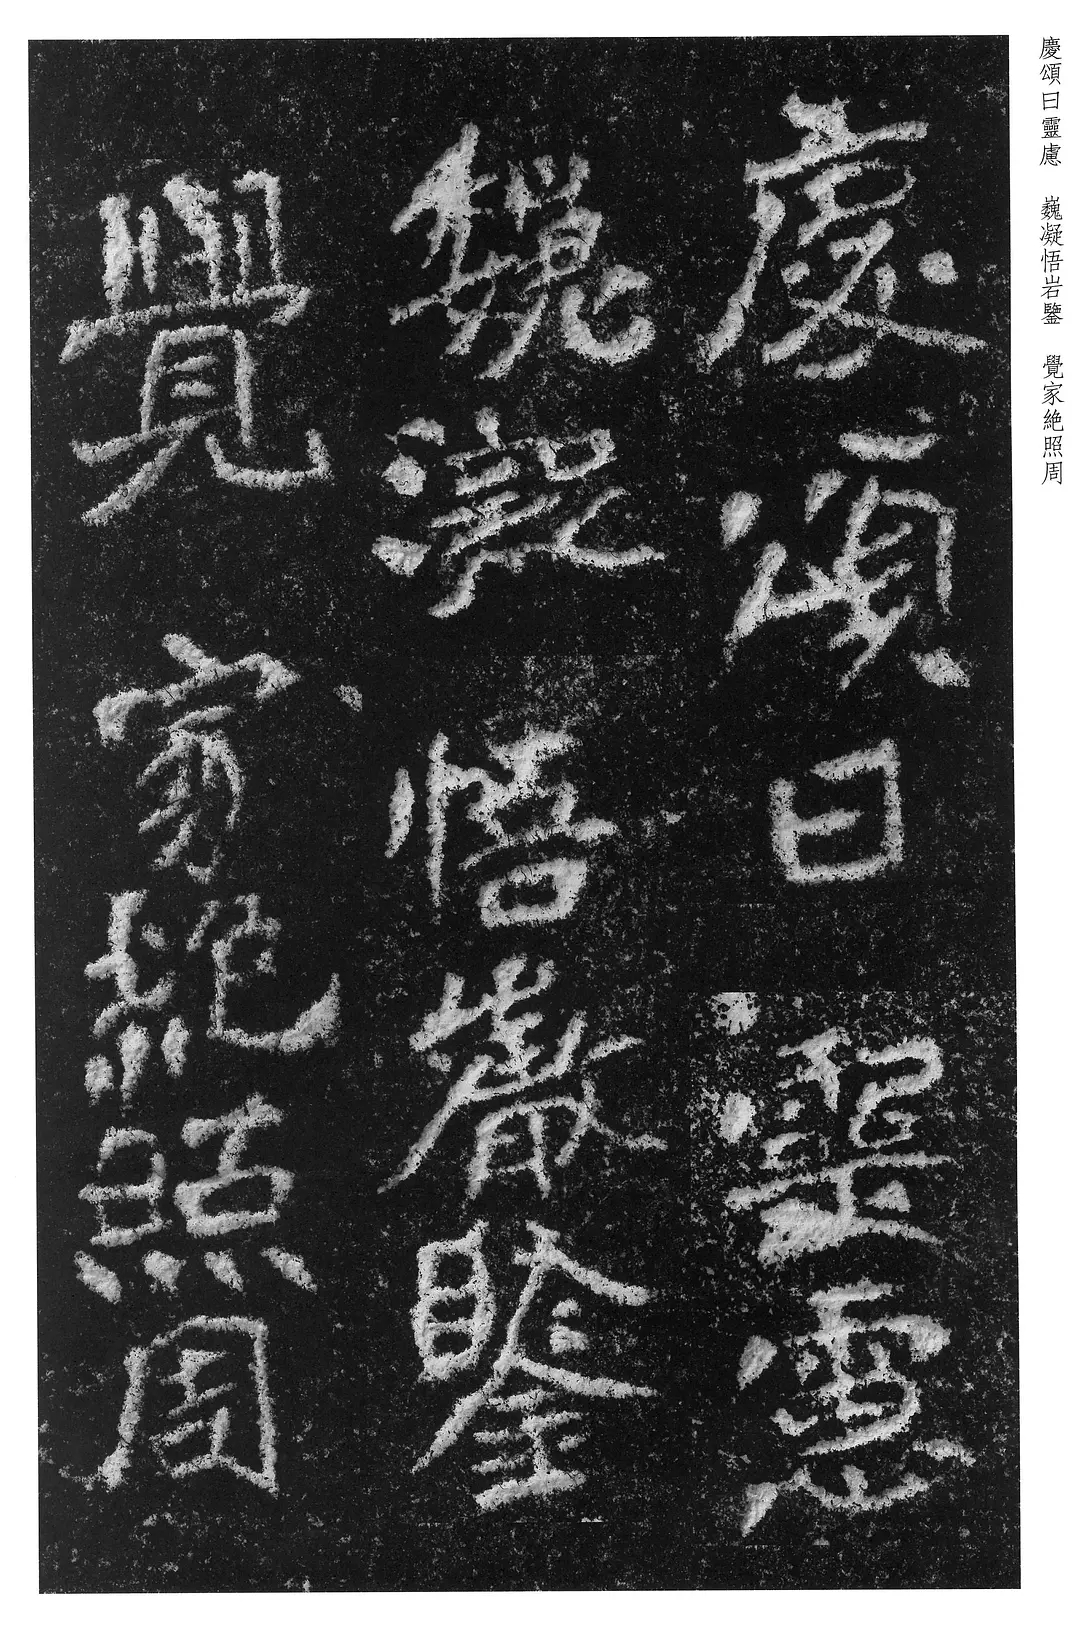 慶頌曰靈慮　巍凝悟岩鑒　覺家絶照周
慶頌曰靈慮
巍凝悟巖鑒
覺家絶照周